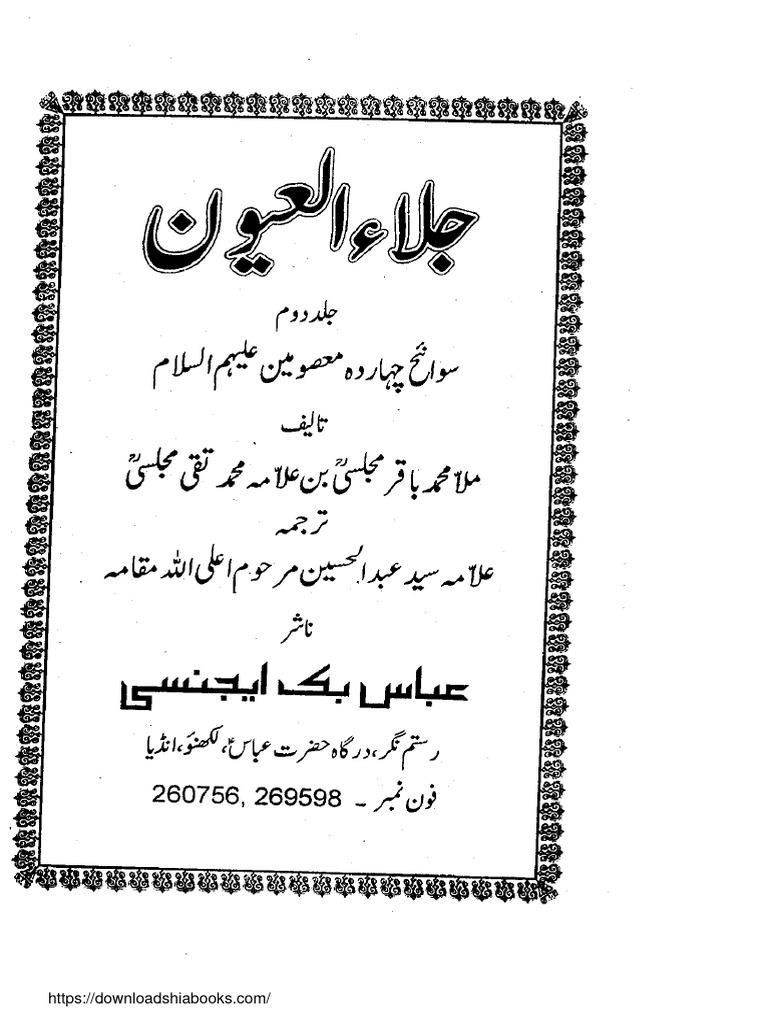 جلاء العیون
جلد دوم
سوانح چہاردہ معصومین علیہم السلام
تالیف
ملا محمد باقر مجلسیؒ بن علامہ محمد تقی مجلسیؒ
ترجمہ
علامہ سید عبدالحسین مرحوم اعلی اللہ مقامہ
ناشر
عباس بک ایجنسی
رستم نگر، درگاہ حضرت عباسؑ، لکھنؤ، انڈیا
فون نمبر ۔ 260756, 269598
https://downloadshiabooks.com/